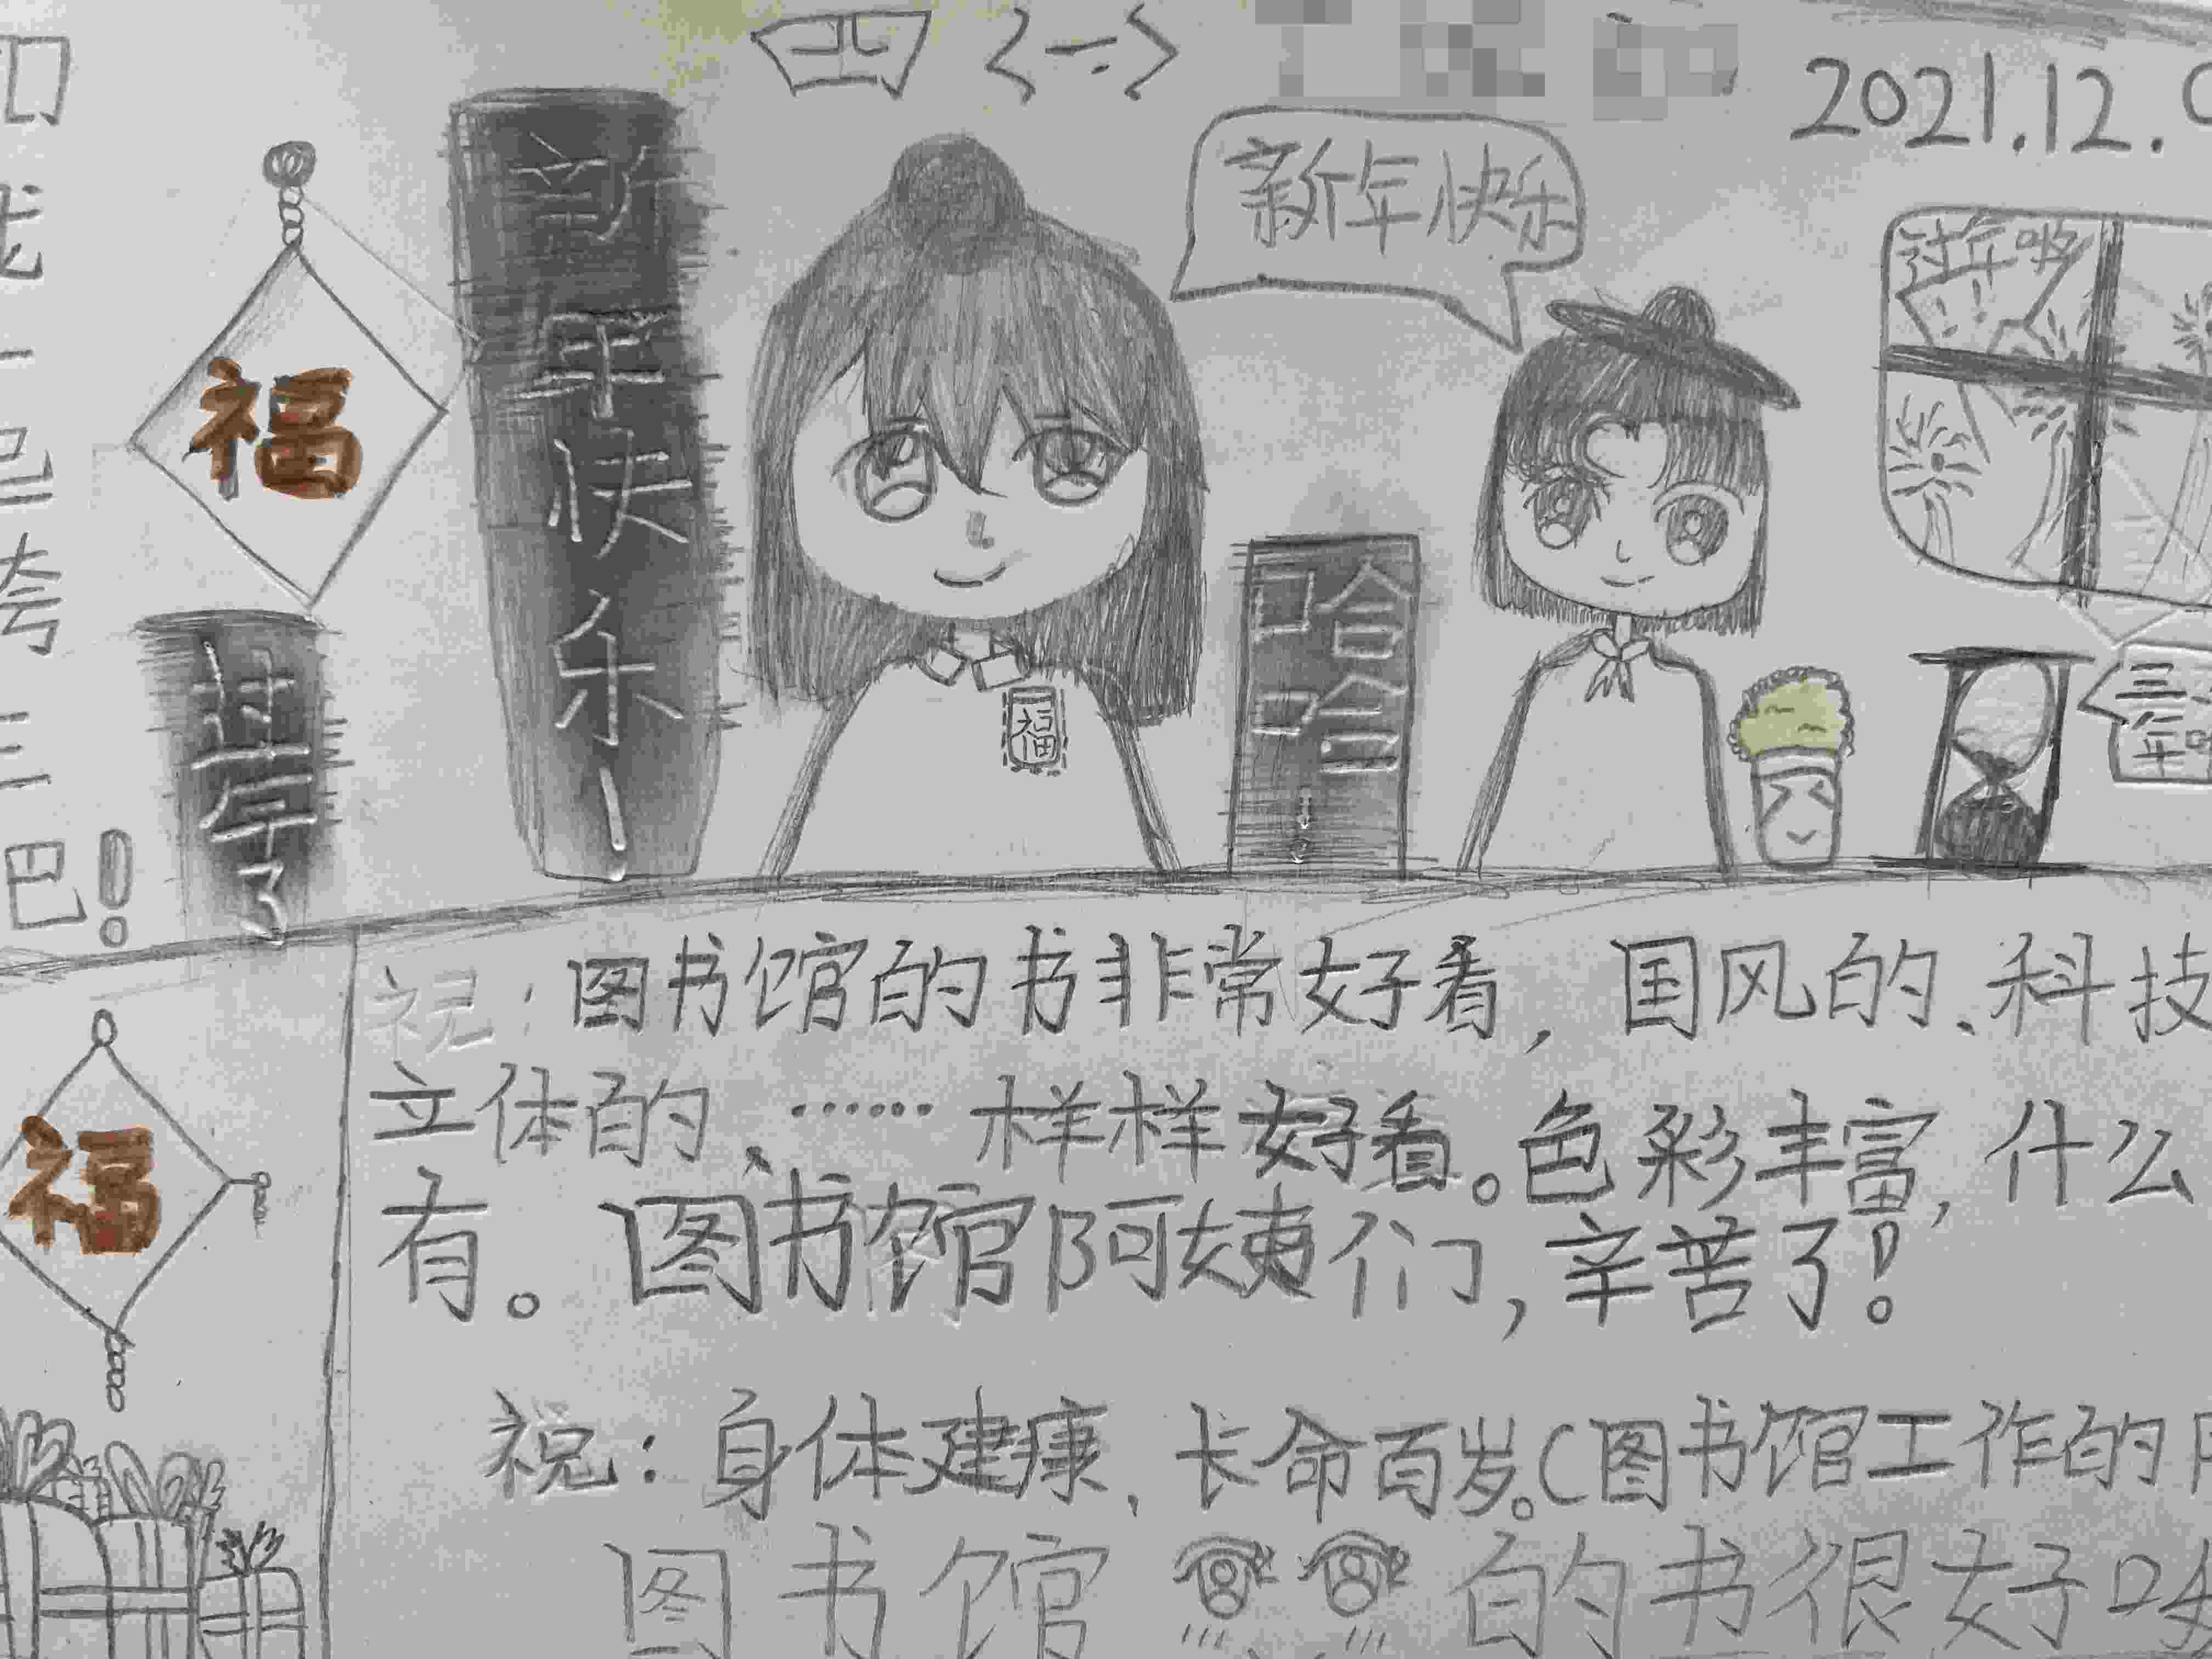 四(一)
2021.12.
新年快乐
过年哟
福
新年快乐!
福
哈哈!
过年了
三
年
巴!
祝:图书馆的书非常好看,国风的、科技
立体的、……样样好看。色彩丰富,什么
有。图书馆阿姨们,辛苦了!
福
祝:身体建康、长命百岁。(图书馆工作的
图书馆 的书很好